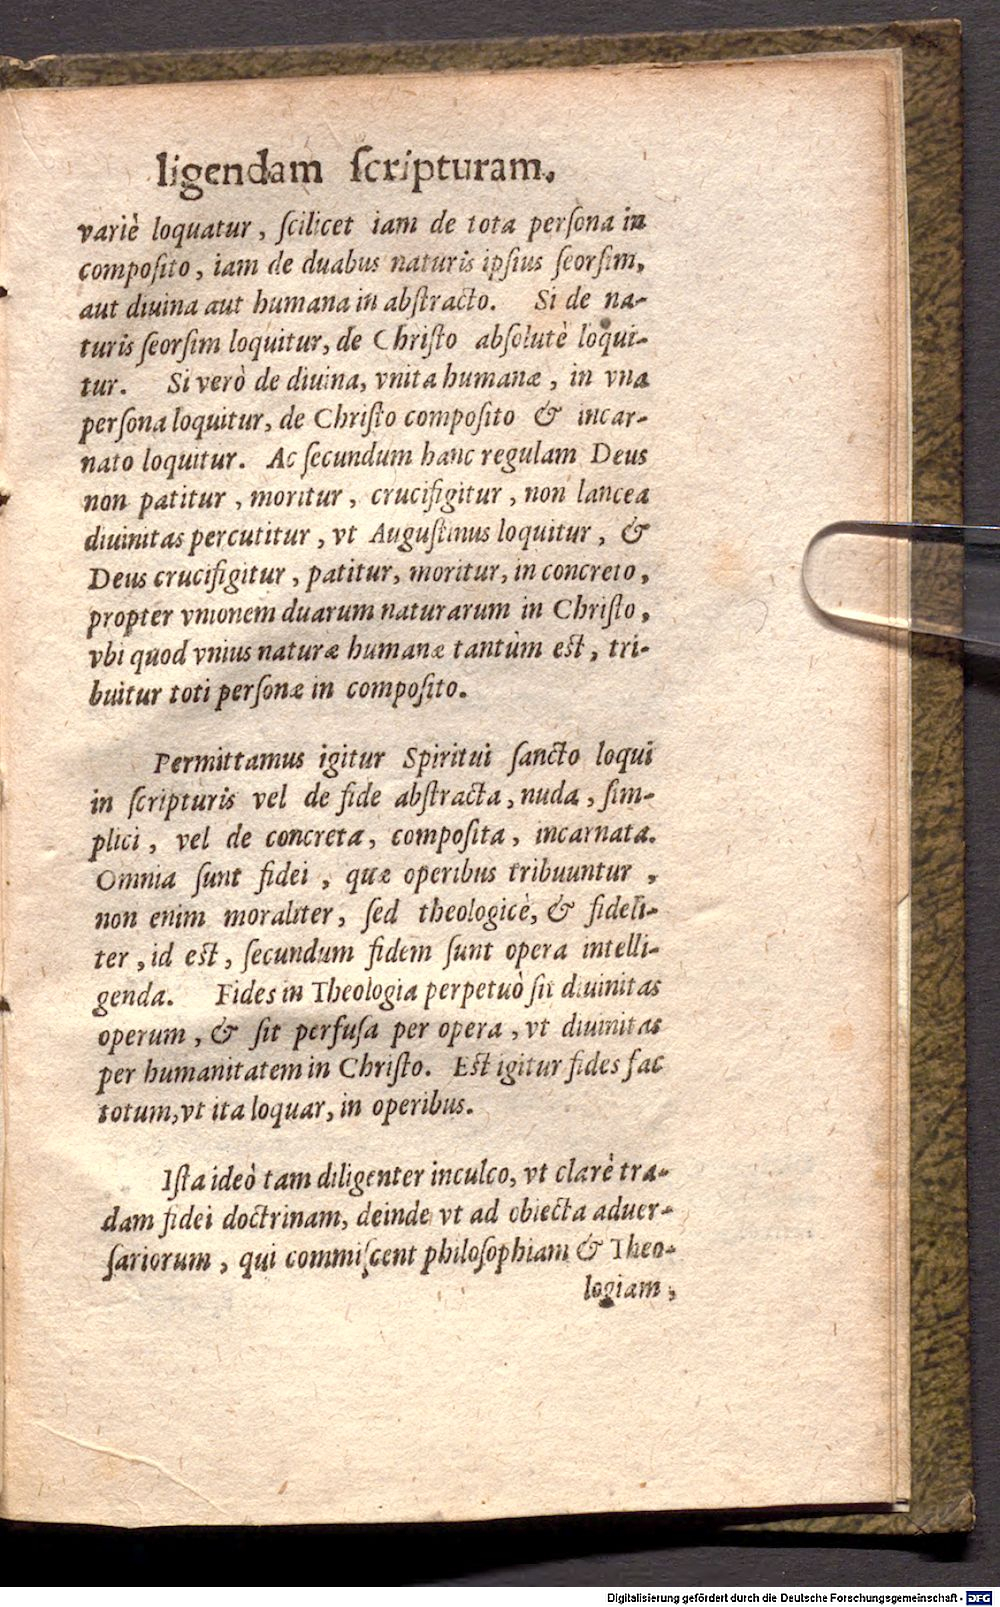 ligendam ſcripturam.
variè loquatur, ſcilicet iam de tota perſona in
compoſito, iam de duabus naturis ipſius ſeorſim,
aut diuina aut humana in abſtracto. Si de na-
turis ſeorſim loquitur, de Chriſto abſolutè loqui-
tur. Si verò de diuina, vnita humanæ, in vna
perſona loquitur, de Chriſto compoſito & incar-
nato loquitur. Ac ſecundum hanc regulam Deus
non patitur, moritur, crucifigitur, non lancea
diuinitas percutitur, vt Auguſtinus loquitur, &
Deus crucifigitur, patitur, moritur, in concreto,
propter vnionem duarum naturarum in Chriſto,
vbi quod vnius naturæ humanæ tantùm eſt, tri-
buitur toti perſonæ in compoſito.
Permittamus igitur Spiritui ſancto loqui
in ſcripturis vel de fide abſtracta, nuda, ſim-
plici, vel de concreta, compoſita, incarnata.
Omnia ſunt fidei, quæ operibus tribuuntur,
non enim moraliter, ſed theologicè, & fideli-
ter, id eſt, ſecundum fidem ſunt opera intelli-
genda. Fides in Theologia perpetuò ſit diuinitas
operum, & ſit perfuſa per opera, vt diuinitas
per humanitatem in Chriſto. Eſt igitur fides fac
totum, vt ita loquar, in operibus.
Iſta ideò tam diligenter inculco, vt clarè tra-
dam fidei doctrinam, deinde vt ad obiecta aduer-
ſariorum, qui commiſcent philoſophiam & Theo-
logiam,
Digitalisierung gefördert durch die Deutsche Forschungsgemeinschaft - DFG